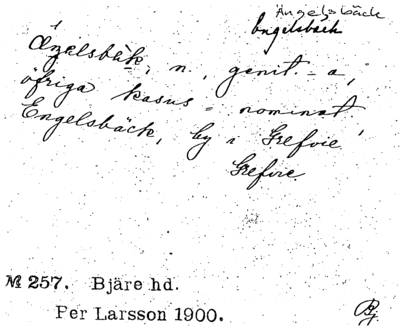 Ängelsbäck
Engelsbäck
Ængelsbäk, n., genit. -a,
öfriga kasus = nominat.
Engelsbäck, by i Grefvie
Grefvie.
№ 257. Bjäre hd.
Per Larsson 1900.